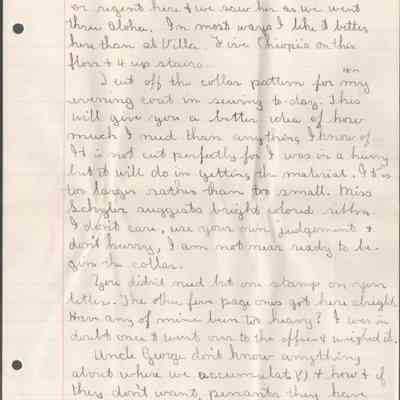 or regent here & we saw her as we went
thru Aloha. In most ways I like it better
here than at Villa. Five Chiopis on this
floor & 4 up stairs.
I cut off the collar pattern for my
evening coat in sewing to-day. This
will give you a better idea of how
much I need than anything I know of.
It is not cut perfectly for I was in a hurry
but it will do in getting the material. It is
too large rather than too small. Miss
Schyler suggests bright colored ribbon.
I don't care, use your own judgement &
don't hurry, I am not near ready to be-
gin the collar.
You didn't need but one stamp on your
letter. The other four page ones got here alright.
Have any of mine been too heavy? I was in
doubt once & went over to the office & weighed it.
Uncle George don't know anything
about where we accumulate & how & if
they don't want, they have